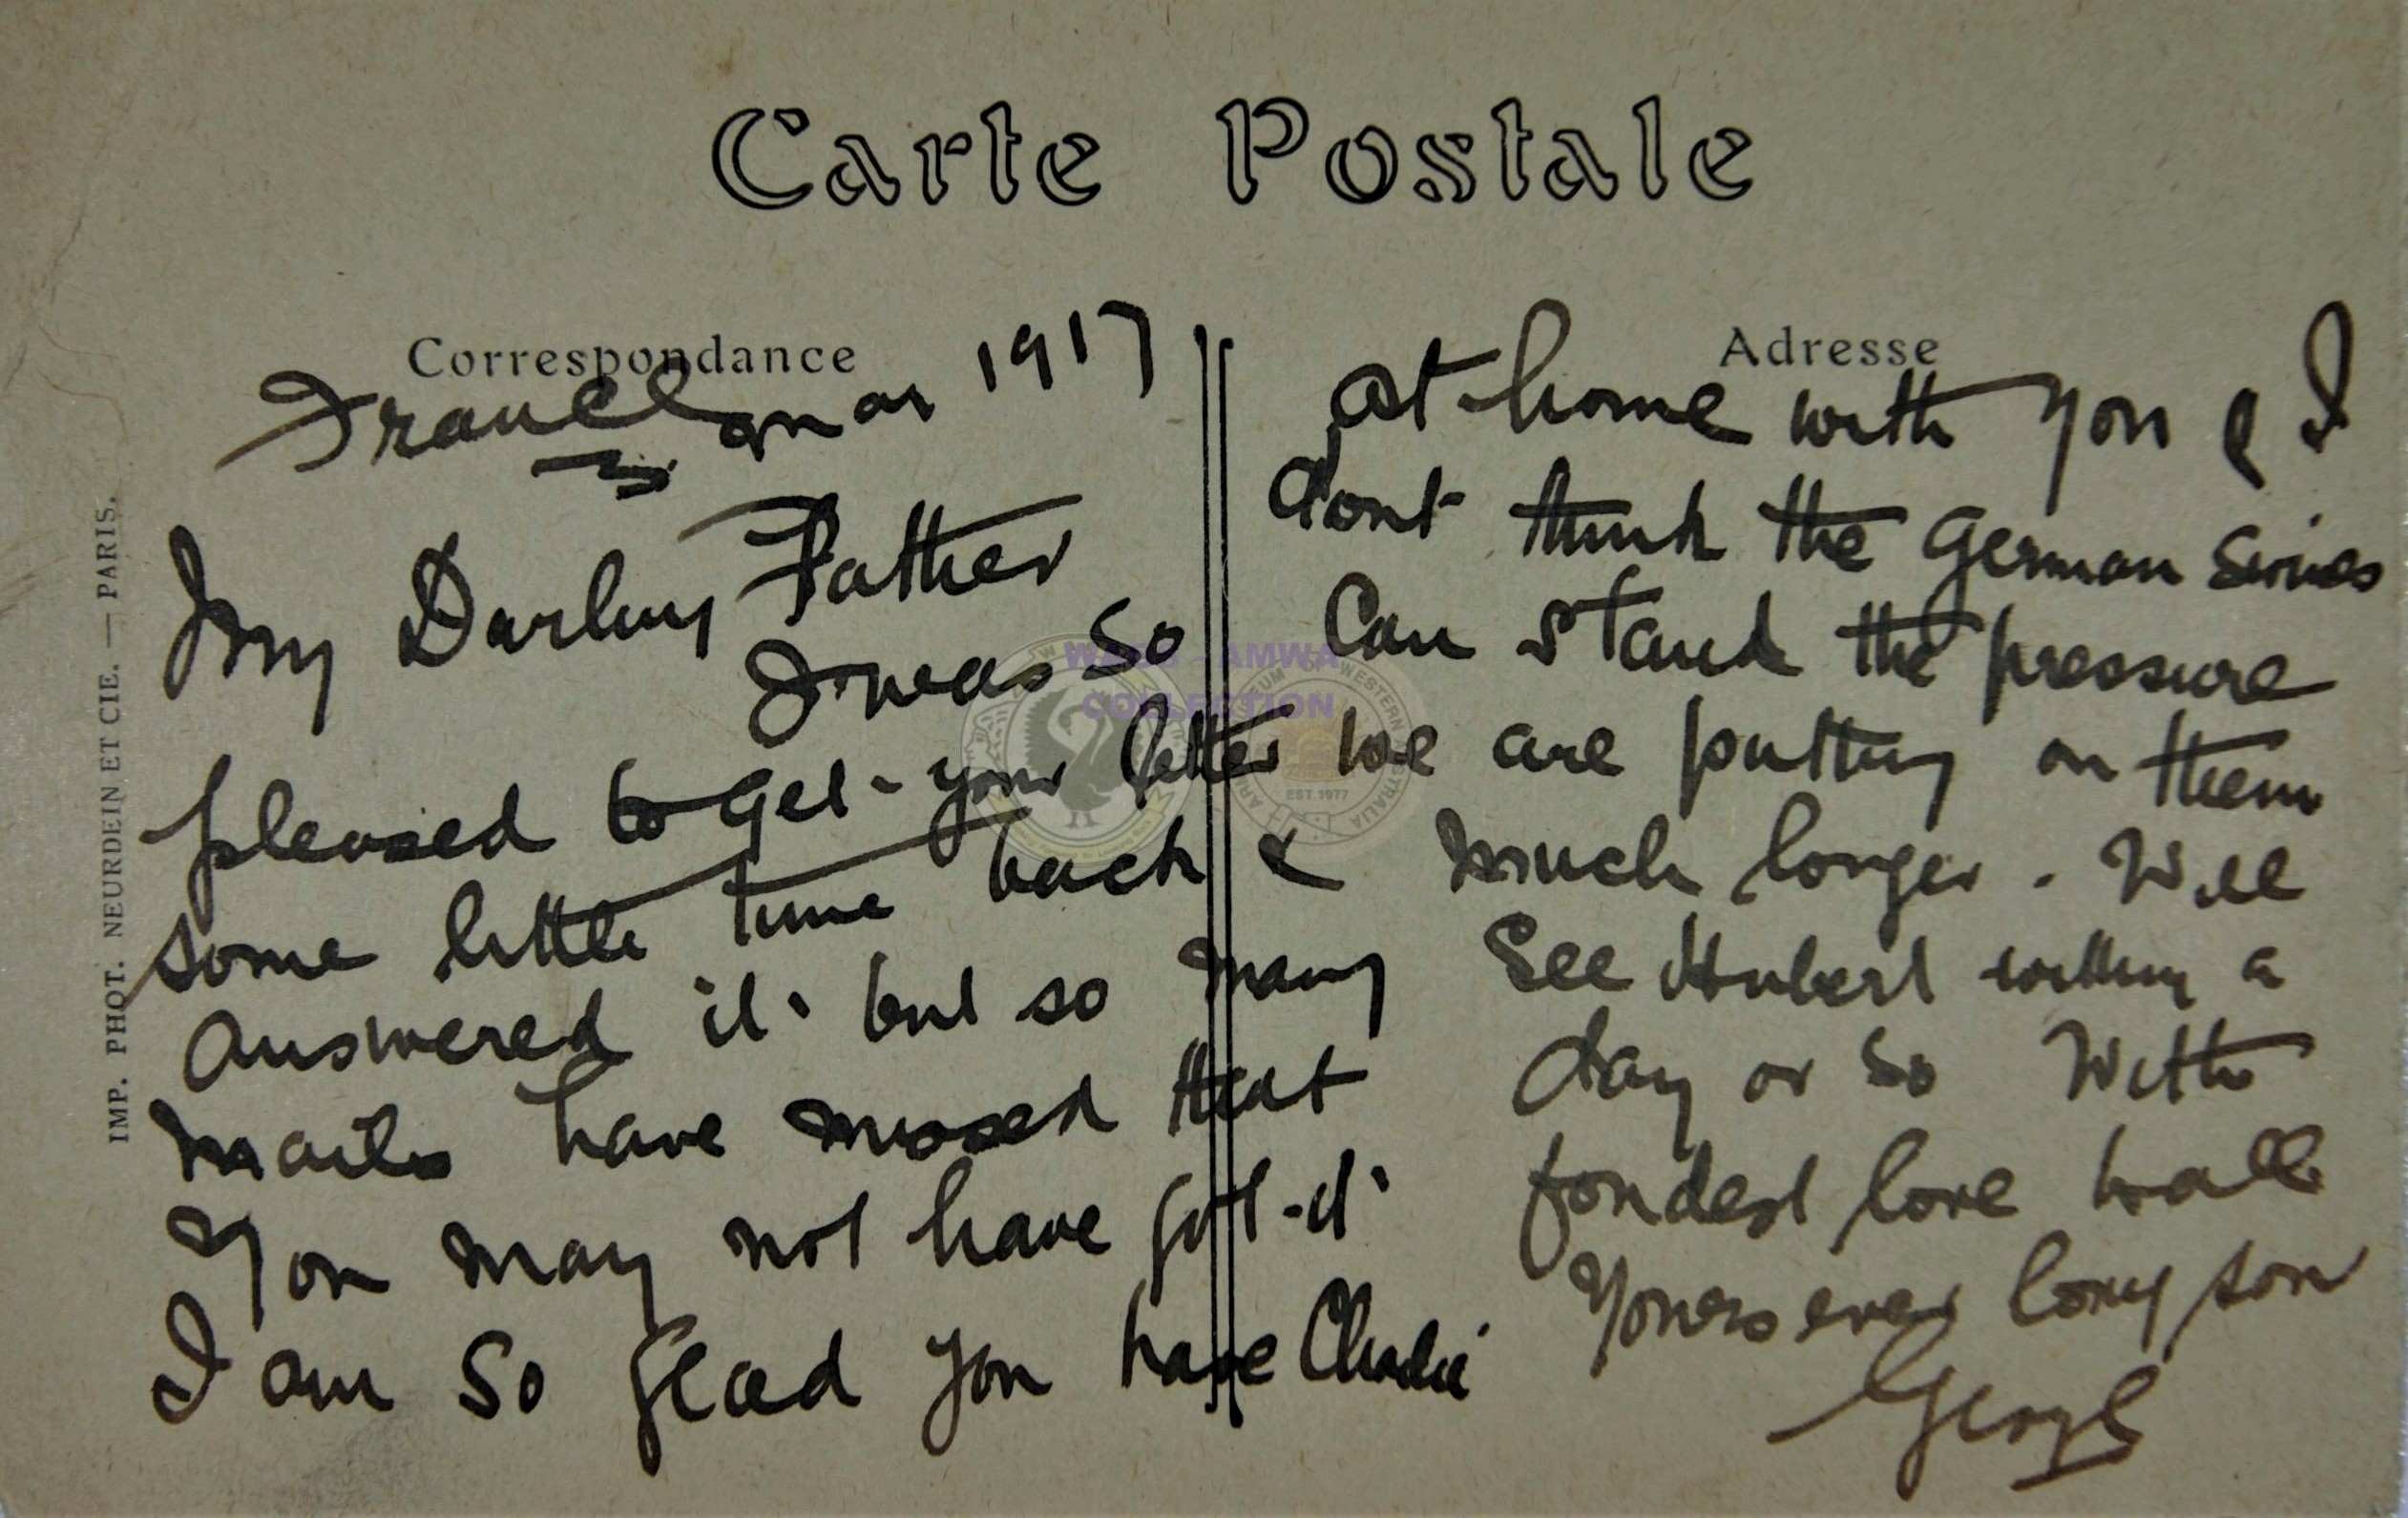 Carte Postale
Correspondance
France Mar 1917
My Darling Father
I was so
pleased to get your letter
some little time back &
answered it but so many
mails have missed that
you may not have got it
I am so glad you have Charlie
Adresse
at home with you & I
dont think the German Swines
can stand the pressure
we are putting on them
much longer. Will
see Hubert within a
day or so With
fondest love to all
Yours ever loving son
George
IMP. PHOT. NEURDEIN ET CIE. — PARIS.
AMWA
COLLECTION
EST 1977